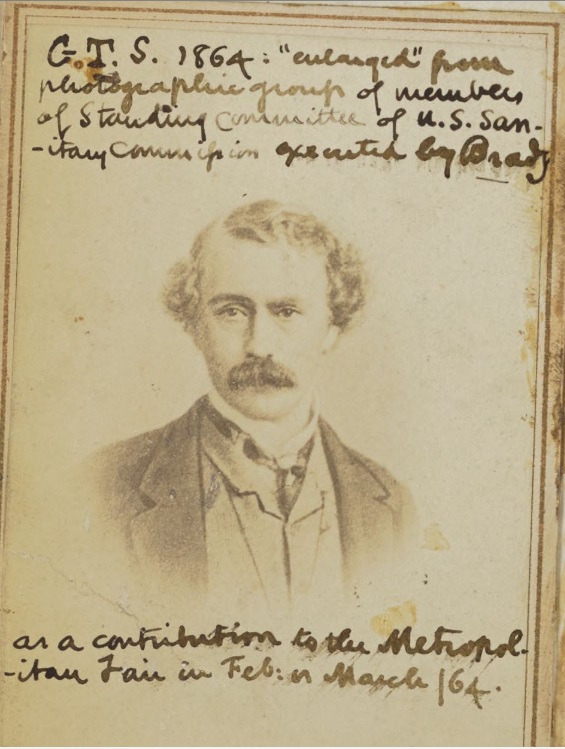 G.T.S. 1864: "enlarged" from
photographic group of members
of Standing Committee of U.S. San-
-itary Commission executed by Brady
as a contribution to the Metropol-
-itan Fair in Feb: or March /64.